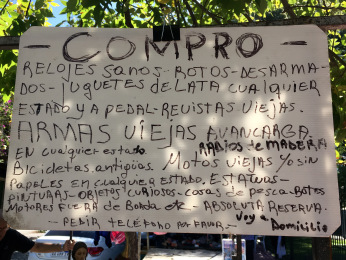 - COMPRO -
RELOJES SANOS - ROTOS - DESARMA-
DOS - JUGUETES DE LATA CUALQUIER
ESTADO Y A PEDAL - REVISTAS VIEJAS.
ARMAS VIEJAS AVANCARGA.
EN cualquier estado. RADIOS de MADERA
Bicicletas antiguas. Motos Viejas Yo sin
Papeles en cualquier Estado, Estatuas -
PINTURAS - OBJETOS CURIOSOS - cosas de pesca - Botes
MOTORES FUERA de Borda etc - ABSOLUTA RESERVA.
- PEDIR TELÉFONO POR FAVOR - Voy a
Domicilio